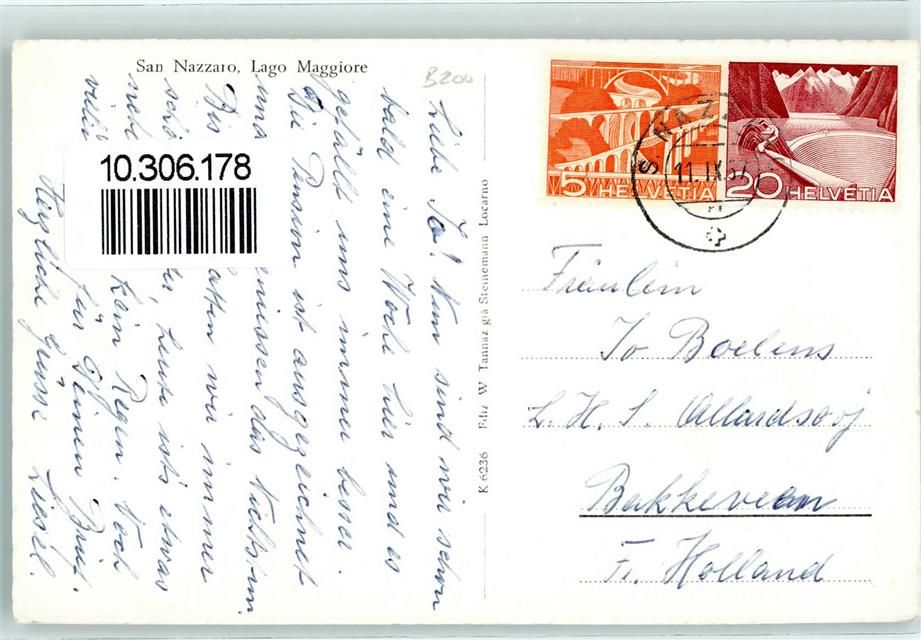 San Nazzaro, Lago Maggiore
B200
Liebe Jo! Nun sind wir schon
bald eine Woche hier und es
gefällt uns immer besser.
Die Pension ist ausgezeichnet
und geniessen das Nichtstun.
Bis hatten wir immer
schö , heute ist's etwas
neb kein Regen. Noch
viele für Deinen Brief.
Herzliche Grüsse Liesel.
10.306.178
K 6236 Ediz W Tannaz già Steinemann Locarno
5 HELVETIA
20 HELVETIA
S. NAZ
11.IX.57
Fräulein
Jo Boelens
L. H. S. Allardsooj
Bakkeveen
Fr. Holland